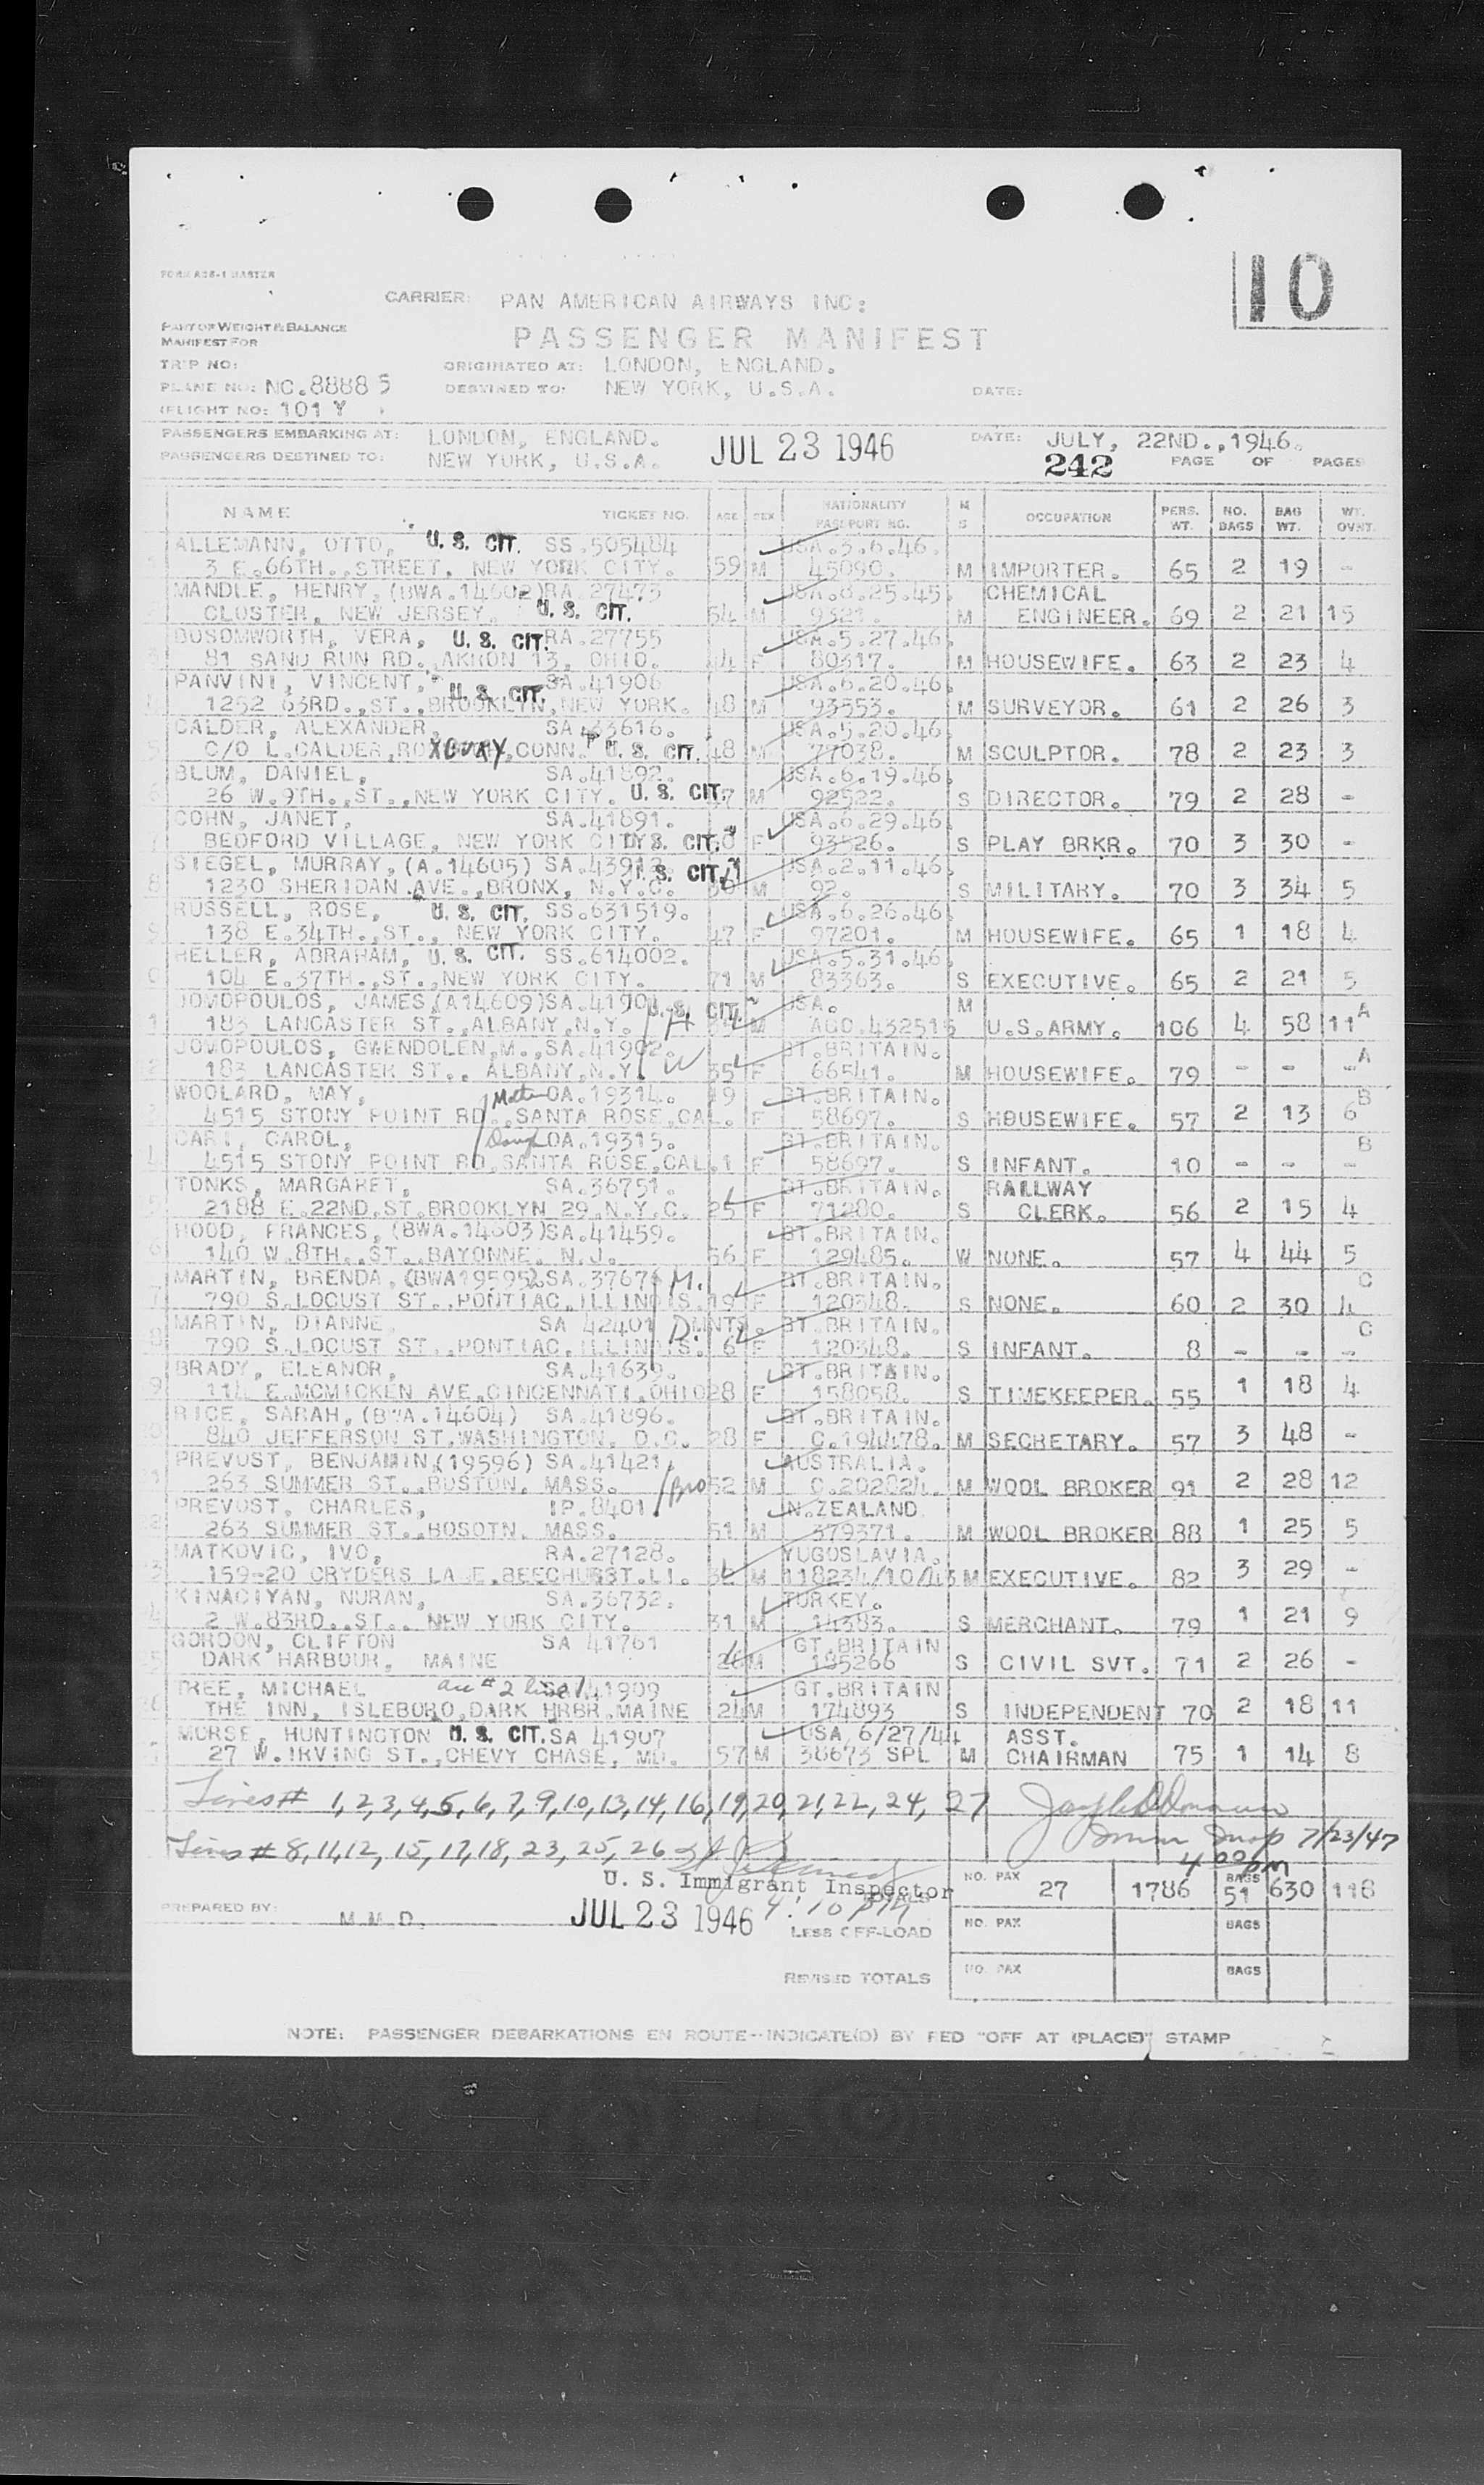 FORM ACS-1 MASTER
10
CARRIER: PAN AMERICAN AIRWAYS INC:
PART OF WEIGHT & BALANCE
MANIFEST FOR
PASSENGER MANIFEST
TRIP NO: ORIGINATED AT: LONDON, ENGLAND.
PLANE NO: NC.88885 DESTINED TO: NEW YORK, U.S.A. DATE:
FLIGHT NO: 101 Y
PASSENGERS EMBARKING AT: LONDON, ENGLAND. JUL 23 1946 DATE: JULY, 22ND.,1946.
PASSENGERS DESTINED TO: NEW YORK, U.S.A. 242 PAGE OF PAGES
NAME TICKET NO. AGE SEX NATIONALITY PASSPORT NO. M S OCCUPATION PERS. WT. NO. BAGS BAG WT. WT. OVNT.
ALLEMANN, OTTO, U. S. CIT. SS.505484 USA.3.6.46.
3 E.66TH.,STREET, NEW YORK CITY. 59 M 45090. M IMPORTER. 65 2 19 -
MANDLE, HENRY,(BWA.14602)RA.27473 USA.8.25.45. CHEMICAL
CLOSTER, NEW JERSEY. U. S. CIT. 54 M 9321. M ENGINEER. 69 2 21 15
BOSOMWORTH, VERA, U. S. CIT. RA.27755 USA.5.27.46.
81 SAND RUN RD.,AKRON 13, OHIO. 44 F 80317. M HOUSEWIFE. 63 2 23 4
PANVINI, VINCENT. U. S. CIT. SA.41906 USA.6.20.46.
1252 63RD.,ST.,BROOKLYN,NEW YORK. 48 M 93553. M SURVEYOR. 61 2 26 3
CALDER, ALEXANDER, SA.33616. USA.5.20.46.
C/O L.CALDER,ROXBURY,CONN. U. S. CIT. 48 M 77038. M SCULPTOR. 78 2 23 3
BLUM, DANIEL, SA.41892. USA.6.19.46.
26 W.9TH.,ST.,NEW YORK CITY. U. S. CIT. 47 M 92522. S DIRECTOR. 79 2 28 -
COHN, JANET, SA.41891. USA.6.29.46.
BEDFORD VILLAGE, NEW YORK CITY. U. S. CIT. F 93526. S PLAY BRKR. 70 3 30 -
SIEGEL, MURRAY,(A.14605) SA.43912. U. S. CIT. USA.2.11.46.
1230 SHERIDAN AVE.,BRONX, N.Y.C. 30 M 92. S MILITARY. 70 3 34 5
RUSSELL, ROSE, U. S. CIT. SS.631519. USA.6.26.46.
138 E.34TH.,ST., NEW YORK CITY. 47 F 97201. M HOUSEWIFE. 65 1 18 4
HELLER, ABRAHAM, U. S. CIT. SS.614002. USA.5.31.46.
104 E.37TH.,ST.,NEW YORK CITY. 71 M 83363. S EXECUTIVE. 65 2 21 5
JOMOPOULOS, JAMES,(A14609)SA.4190 U. S. CIT. USA. M A
183 LANCASTER ST.,ALBANY,N.Y. H M AGO.432515 U.S.ARMY. 106 4 58 11
JOMOPOULOS, GWENDOLEN,M.,SA.41902. GT.BRITAIN. A
183 LANCASTER ST., ALBANY,N.Y. W 35 F 66541. M HOUSEWIFE. 79 - - -
WOOLARD, MAY, Mother OA.19314. 49 GT.BRITAIN. B
4515 STONY POINT RD.,SANTA ROSE,CAL. F 58697. S HOUSEWIFE. 57 2 13 6
CARI, CAROL, Daugh OA.19315. GT.BRITAIN. B
4515 STONY POINT RD,SANTA ROSE,CAL. 1 F 58697. S INFANT. 10 - - -
TONKS, MARGARET, SA.36751. GT.BRITAIN. RAILLWAY
2188 E.22ND,ST.BROOKLYN 29,N.Y.C. 25 F 71280. S CLERK. 56 2 15 4
HOOD, FRANCES,(BWA.14603)SA.41459. GT.BRITAIN.
140 W.8TH.,ST.,BAYONNE, N.J. 56 F 129485. W NONE. 57 4 44 5
MARTIN, BRENDA,(BWA19595).SA.3767 M. GT.BRITAIN. C
790 S.LOCUST ST.,PONTIAC,ILLINOIS. 19 F 120348. S NONE. 60 2 30 4
MARTIN, DIANNE. SA 42401 D. MNTS. GT.BRITAIN. C
790 S.LOCUST ST.,PONTIAC,ILLINOIS. 6 F 120348. S INFANT. 8 - - -
BRADY, ELEANOR, SA.41639. GT.BRITAIN.
114 E.MCMICKEN AVE,CINCENNATI,OHIO 28 F 158058. S TIMEKEEPER. 55 1 18 4
RICE, SARAH,(BWA.14604) SA.41896. GT.BRITAIN.
840 JEFFERSON ST.WASHINGTON, D.C. 28 F C.194478. M SECRETARY. 57 3 48 -
PREVOST, BENJAMIN(19596) SA.41421. AUSTRALIA.
263 SUMMER ST.,BOSTON, MASS. Bro 52 M C.202824. M WOOL BROKER 91 2 28 12
PREVOST, CHARLES, IP.8401. N.ZEALAND
263 SUMMER ST.,BOSOTN, MASS. 51 M 379371. M WOOL BROKER 88 1 25 5
MATKOVIC, IVO, RA.27128. YUGOSLAVIA.
159-20 CRYDERS LANE,BEECHURST.LI. M 118234/10/43 M EXECUTIVE. 82 3 29 -
KINACIYAN, NURAN, SA.36732. TURKEY.
2 W.83RD.,ST., NEW YORK CITY. 31 M 14383. S MERCHANT. 79 1 21 9
GORDON, CLIFTON SA 41761 GT.BRITAIN
DARK HARBOUR, MAINE 26 M 185266 S CIVIL SVT. 71 2 26 -
TREE, MICHAEL SA 41909 GT.BRITAIN
THE INN, ISLEBORO,DARK HRBR,MAINE 24 M 174893 S INDEPENDENT 70 2 18 11
MORSE, HUNTINGTON U. S. CIT. SA 41907 USA 6/27/44 ASST.
27 W.IRVING ST.,CHEVY CHASE, MD. 57 M 38673 SPL M CHAIRMAN 75 1 14 8
Lines # 1,2,3,4,5,6,7,9,10,13,14,16,19,20,21,22,24,27
Lines # 8,11,12,15,17,18,23,25,26 7/23/47
4 00 pm
U. S. Immigrant Inspector
TOTALS NO. PAX 27 1786 BAGS 51 630 118
PREPARED BY: M.M.D. JUL 23 1946 4:10 pm
LESS OFF-LOAD NO. PAX BAGS
REVISED TOTALS NO. PAX BAGS
NOTE: PASSENGER DEBARKATIONS EN ROUTE--INDICATE(D) BY RED "OFF AT (PLACE)" STAMP